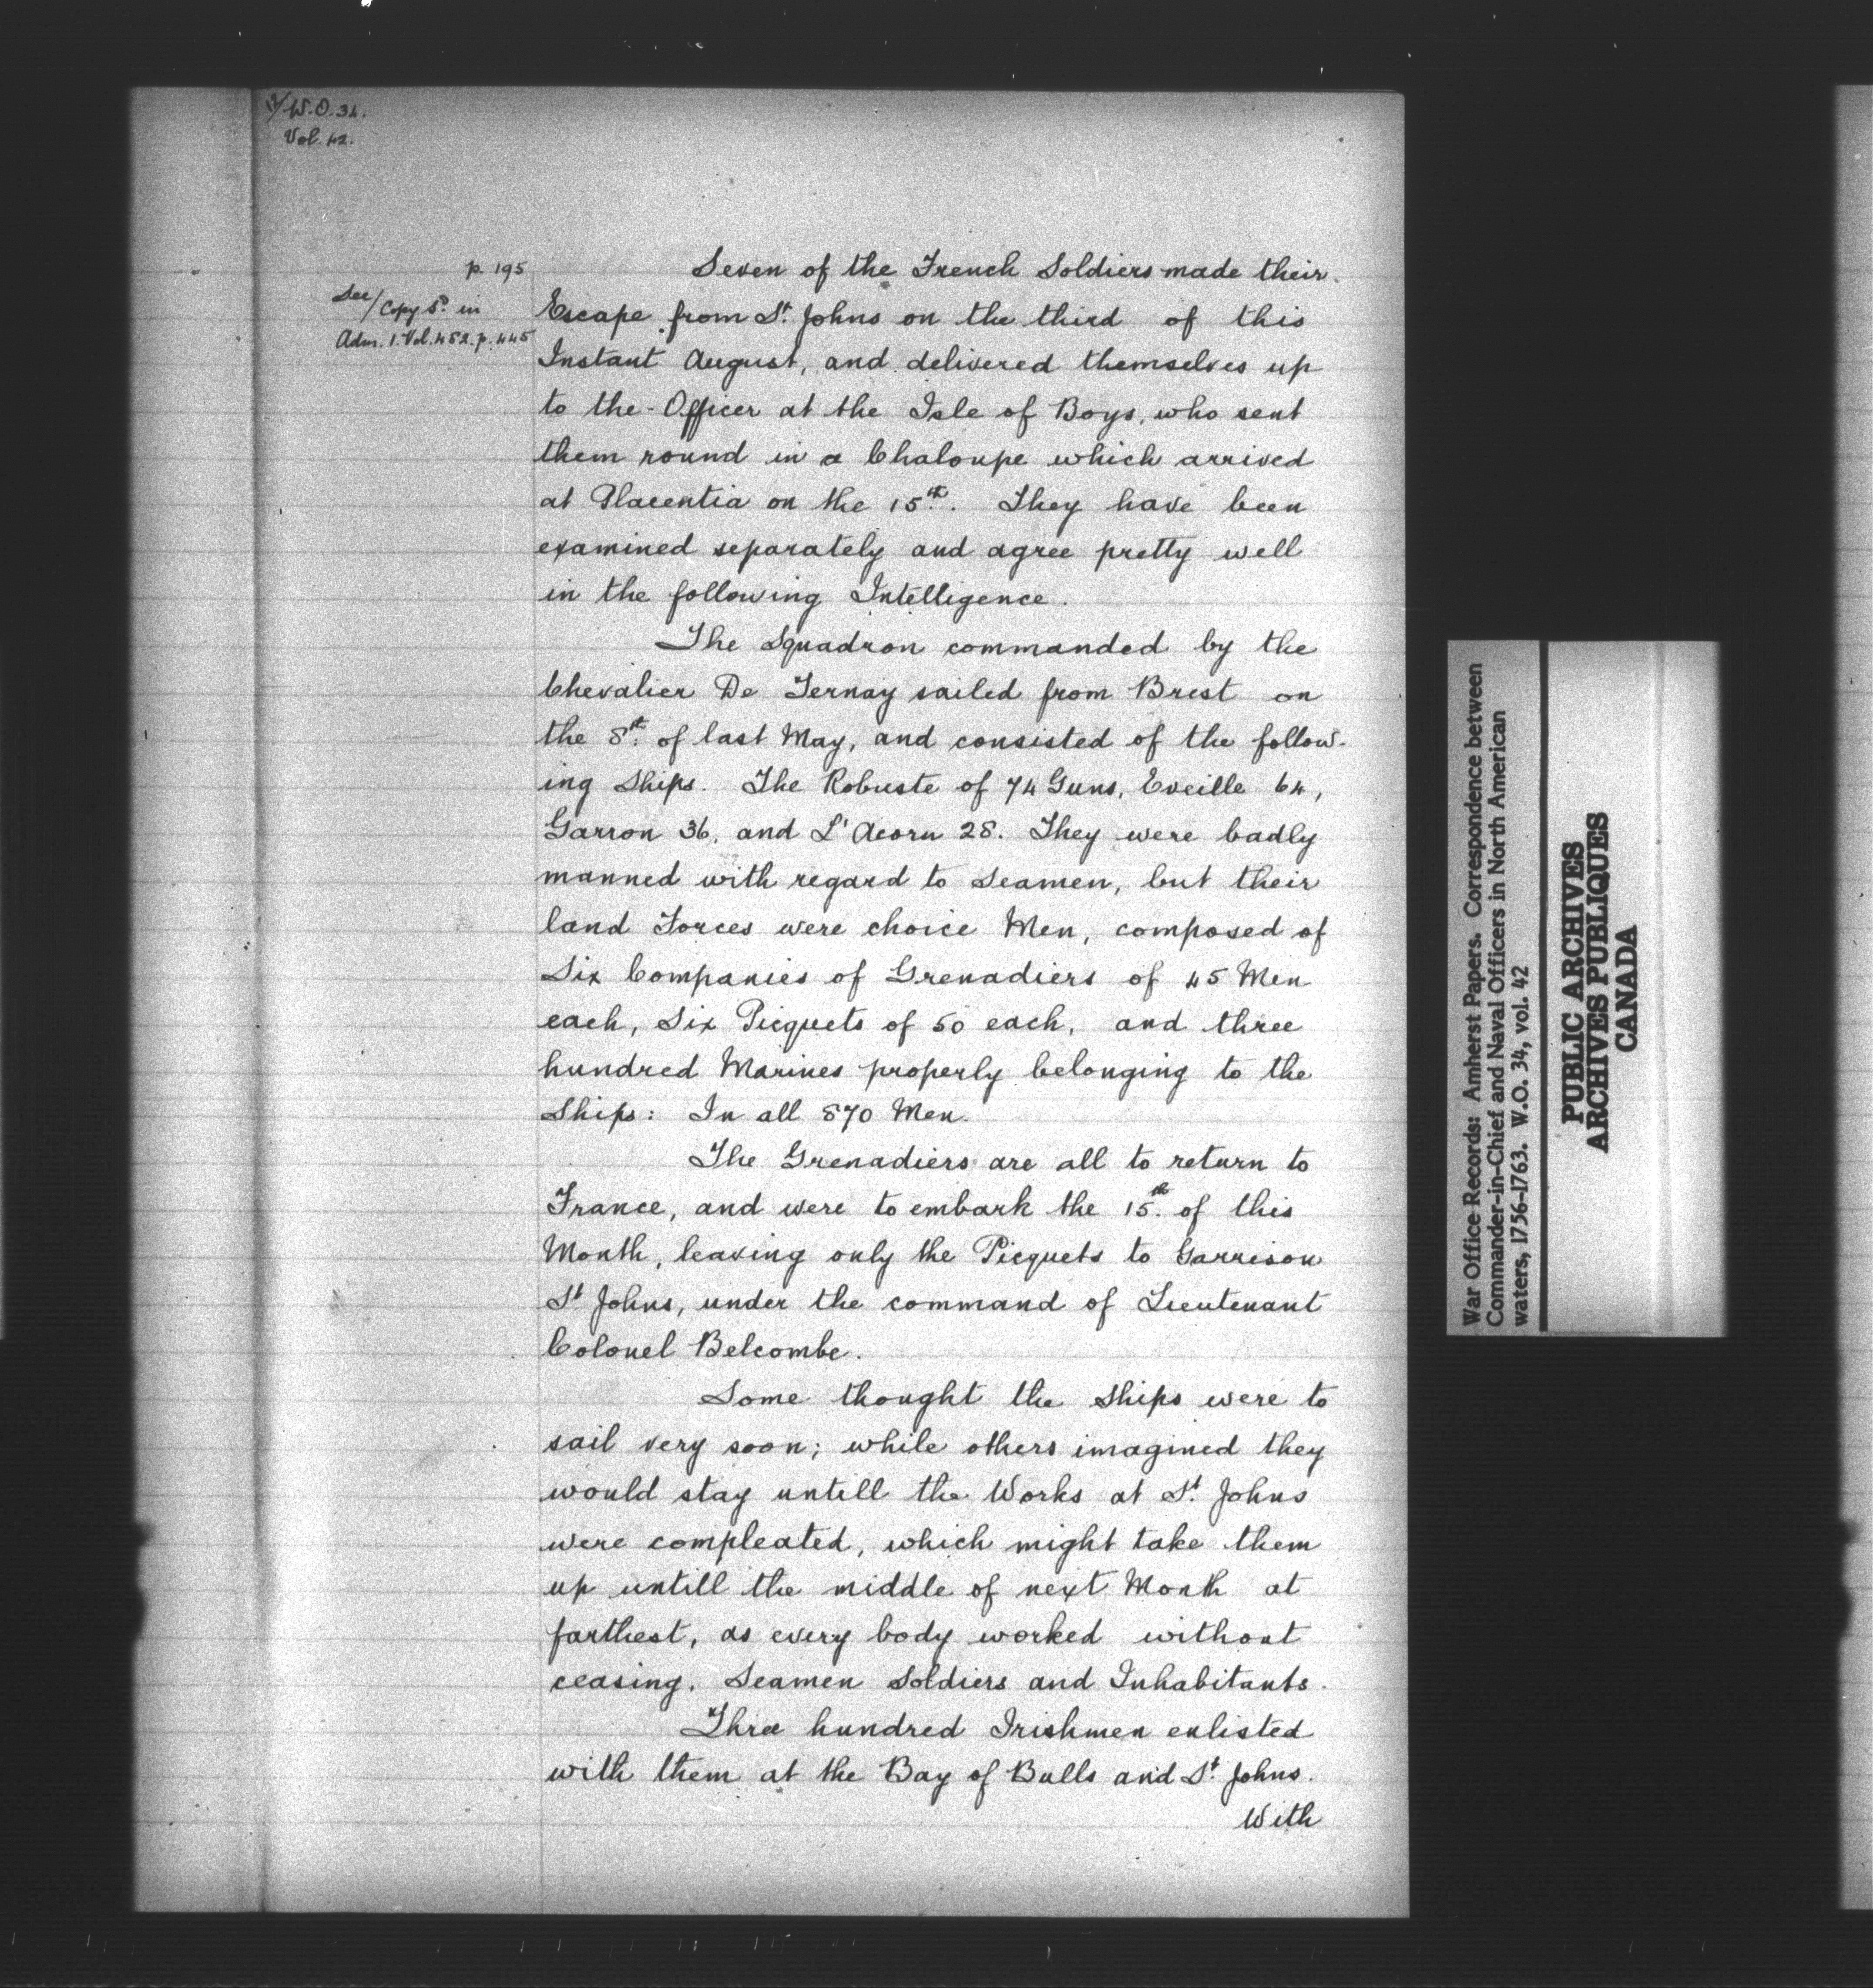 W.O. 34.
Vol. 42.
p. 195
See/Copy Sd. in
Adm. 1. Vol. 482. p. 445
Seven of the French Soldiers made their
Escape from St. Johns on the third of this
Instant August, and delivered themselves up
to the Officer at the Isle of Boys, who sent
them round in a Chaloupe which arrived
at Placentia on the 15th. They have been
examined separately and agree pretty well
in the following Intelligence.
The Squadron commanded by the
Chevalier De Ternay sailed from Brest on
the 8th. of last May, and consisted of the follow-
ing Ships. The Robuste of 74 Guns, Eveille 64,
Garron 36, and L'Acorn 28. They were badly
manned with regard to Seamen, but their
land Forces were choice Men, composed of
Six Companies of Grenadiers of 45 Men
each, Six Picquets of 50 each, and three
hundred Marines properly belonging to the
Ships: In all 870 Men.
The Grenadiers are all to return to
France, and were to embark the 15th. of this
Month, leaving only the Picquets to Garrison
St Johns, under the command of Lieutenant
Colonel Belcombe.
Some thought the Ships were to
sail very soon; while others imagined they
would stay untill the Works at St. Johns
were compleated, which might take them
up untill the middle of next Month at
farthest, as every body worked without
ceasing, Seamen Soldiers and Inhabitants.
Three hundred Irishmen enlisted
with them at the Bay of Bulls and St. Johns.
With
War Office Records: Amherst Papers. Correspondence between
Commander-in-Chief and Naval Officers in North American
waters, 1756-1763. W.O. 34, vol. 42
PUBLIC ARCHIVES
ARCHIVES PUBLIQUES
CANADA